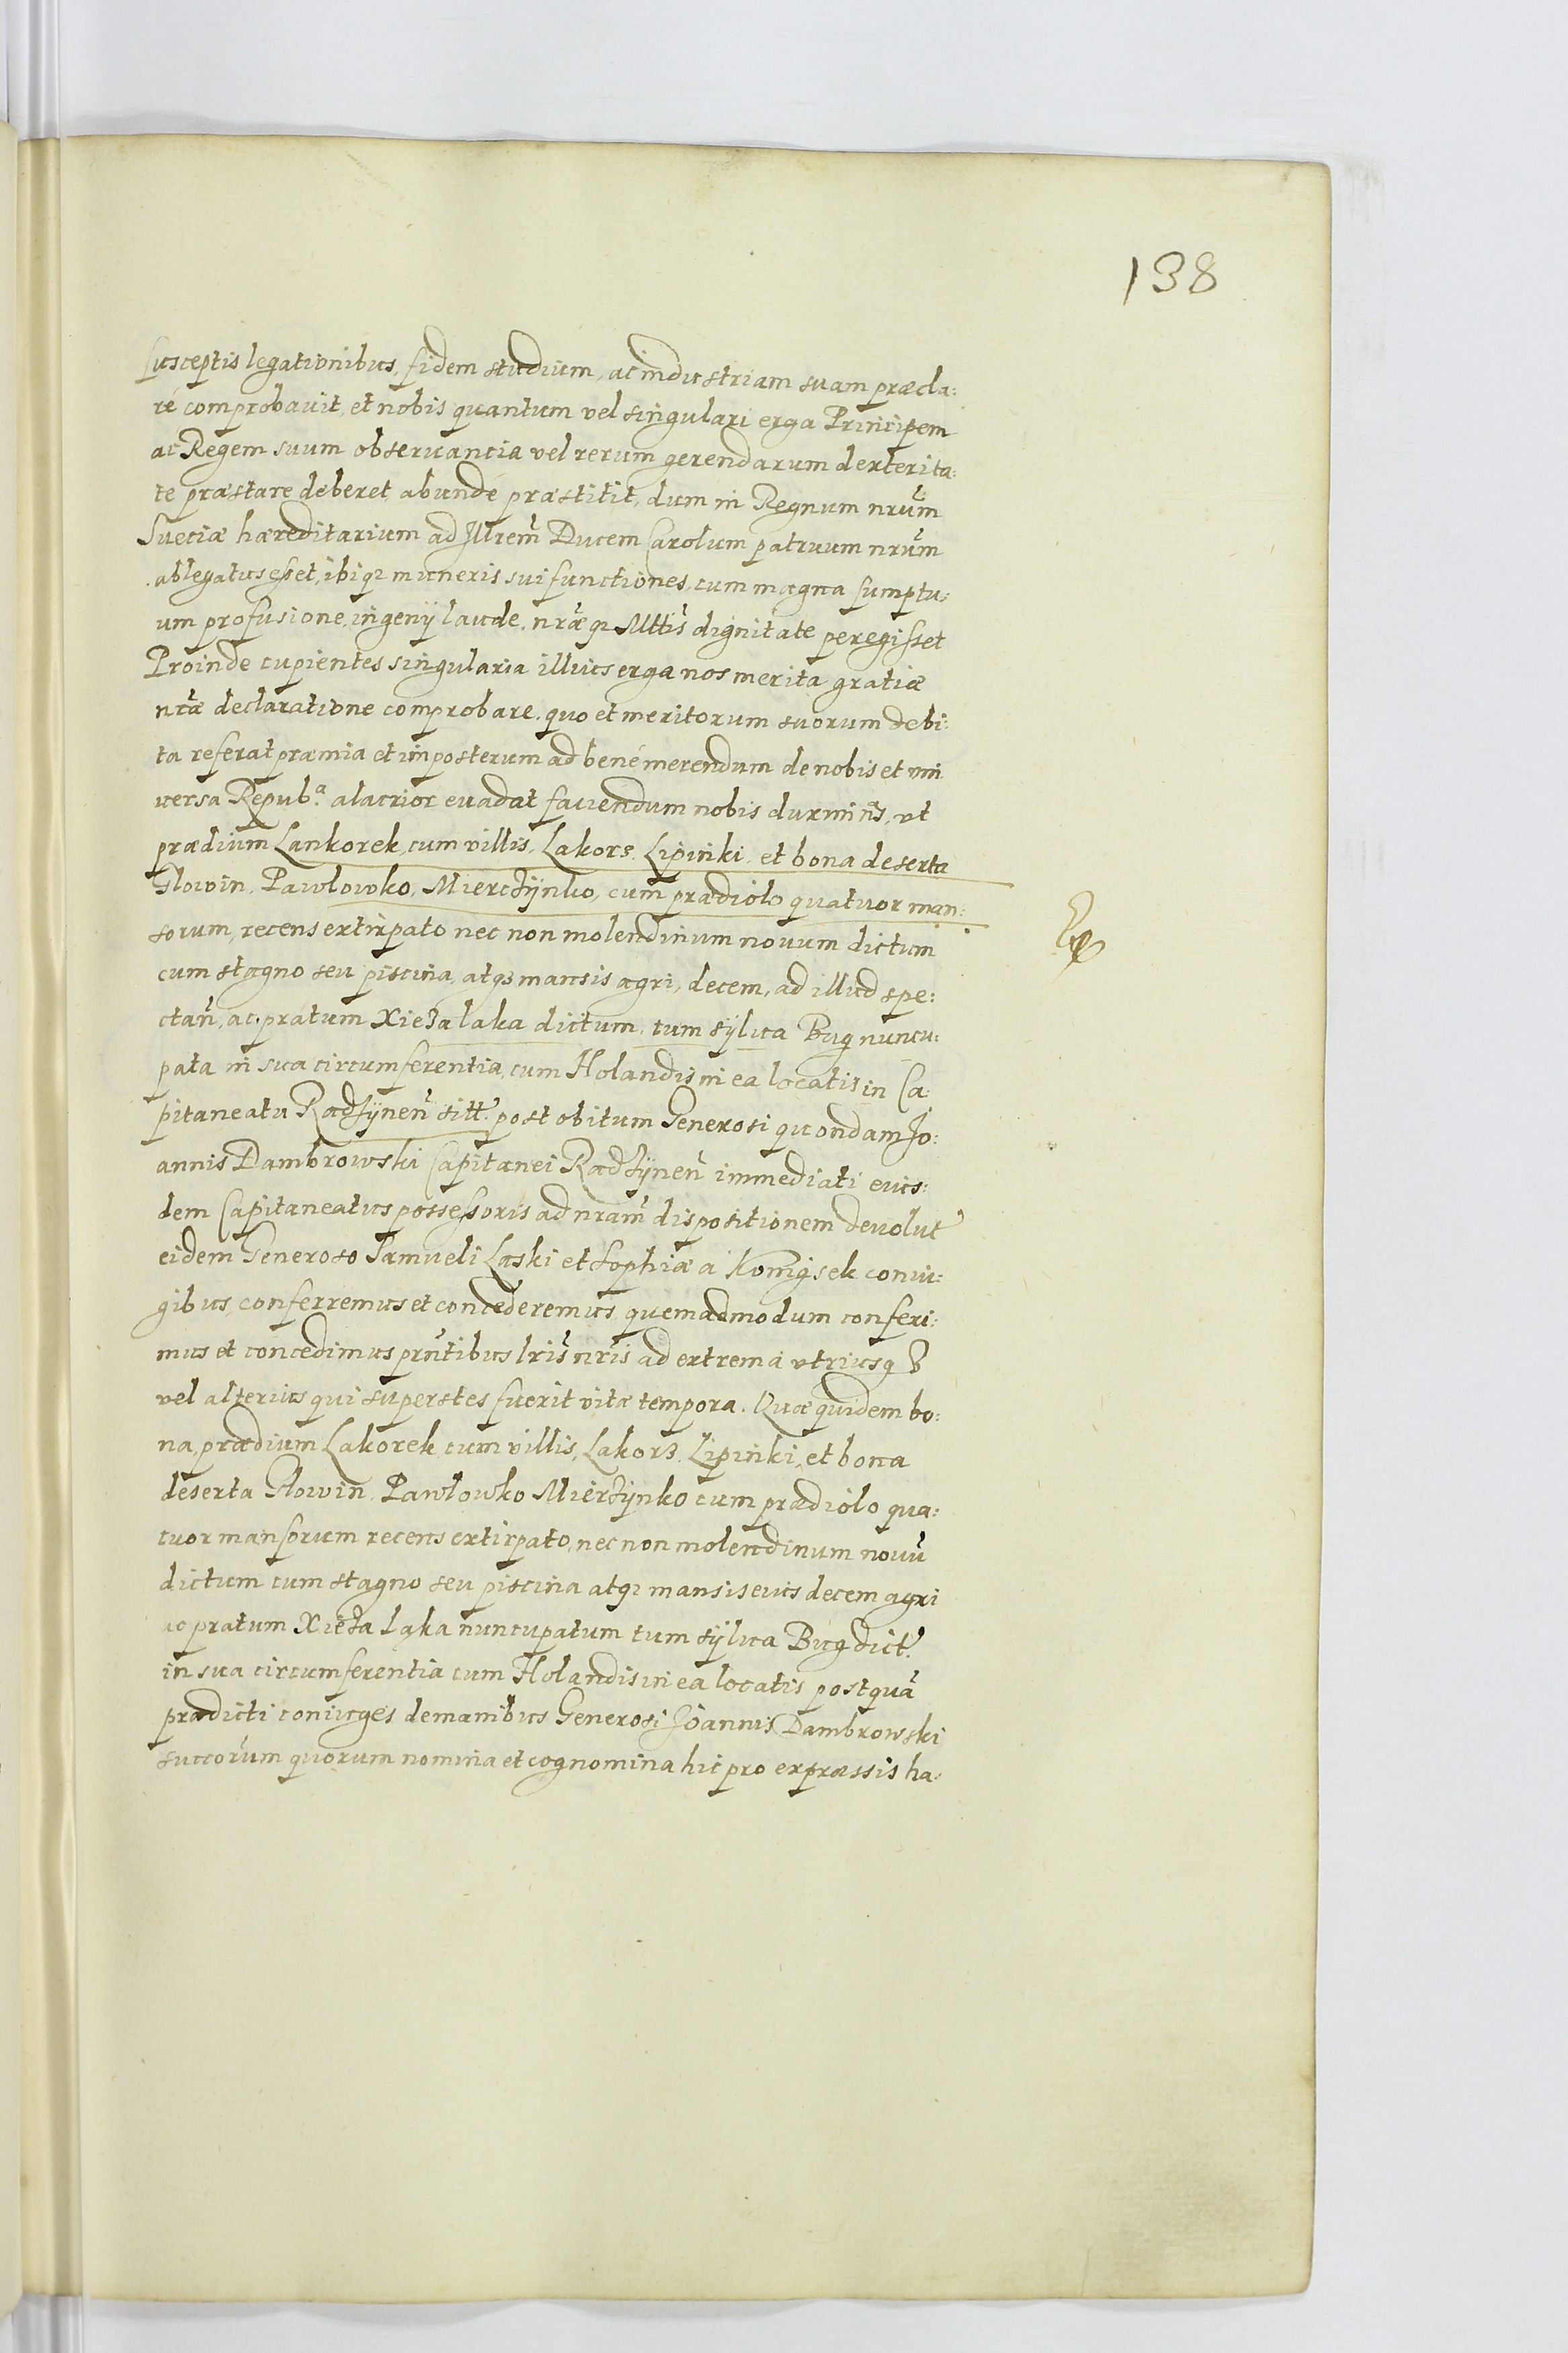 138
susceptis legationibus, fidem studium, ac industriam suam præcla:
ré comprobauit, et nobis quantum vel singulari erga Principem
ac Regem suum obseruantia vel rerum gerendarum dexterita:
te præstare deberet, abundé præstitit, dum in Regnum nrũm
Sueciæ hæreditarium ad Illrem̃ Ducem Carolum patruum nrũm
ablegatus esset, ibiq3 muneris sui functiones, cum magna sumptu:
um profusione, ingenÿ laude, nrãeq3 Mttis̃ dignitate peregisset
Proinde cupientes singularia illius erga nos merita gratiæ
nrãe declaratione comprobare, quo et meritorum suorum debi:
ta referat præmia et inposterum ad bené merendum de nobis et uni
uersa Repub.ᵃ alacrior euadat faciendum nobis duximus̃, vt
prædium Lankorek, cum villis, Lakors, Lipinki, et bona deserta
Glowin, Pawlowko, Mierczÿnko, cum prædiolo quatuor man:
sorum, recens extirpato nec non molendinum nouum dictum
cum stagno seu piscina, atq3 mansis agri, decem, ad illud spe:
ctañ, ac pratum Xieza laka dictum, tum sÿlua Bug nuncu:
pata in sua circumferentia, cum Holandis in ea locatis in Ca:
pitaneatu Radzÿneñ sitt. post obitum Generosi quondam Jo:
annis Dambrowski Capitanei Radzÿneñ immediati eius:
dem Capitaneatus possessoris ad nram̃ dispositionem deuolut
eidem Generoso Samueli Laski et Sophiæ á Konigsek coniu:
gibus conferremus et concederemus quemadmodum conferi:
mus et concedimus prñtibus lris̃ nris̃ ad extrema vtriusq3
vel alterius qui superstes fuerit vitæ tempora. Quæ quidem bo:
na prædium Lakorek cum villis, Lakors, Lipinki, et bona
deserta Glowin, Pawlowko Mierzÿnko cum prædiolo qua:
tuor mansorum recens extirpato, nec non molendinum nouũ
dictum cum stagno seu piscina atq3 mansis eius decem agri
ac pratum Xieza Laka nuncupatum tum sÿlua Bug dict.
in sua circumferentia cum Holandis in ea locatis postquã
prædicti coniuges de manibus Generosi Joannis Dambrowski
succorũm quorum nomina et cognomina hic pro expræssis ha: